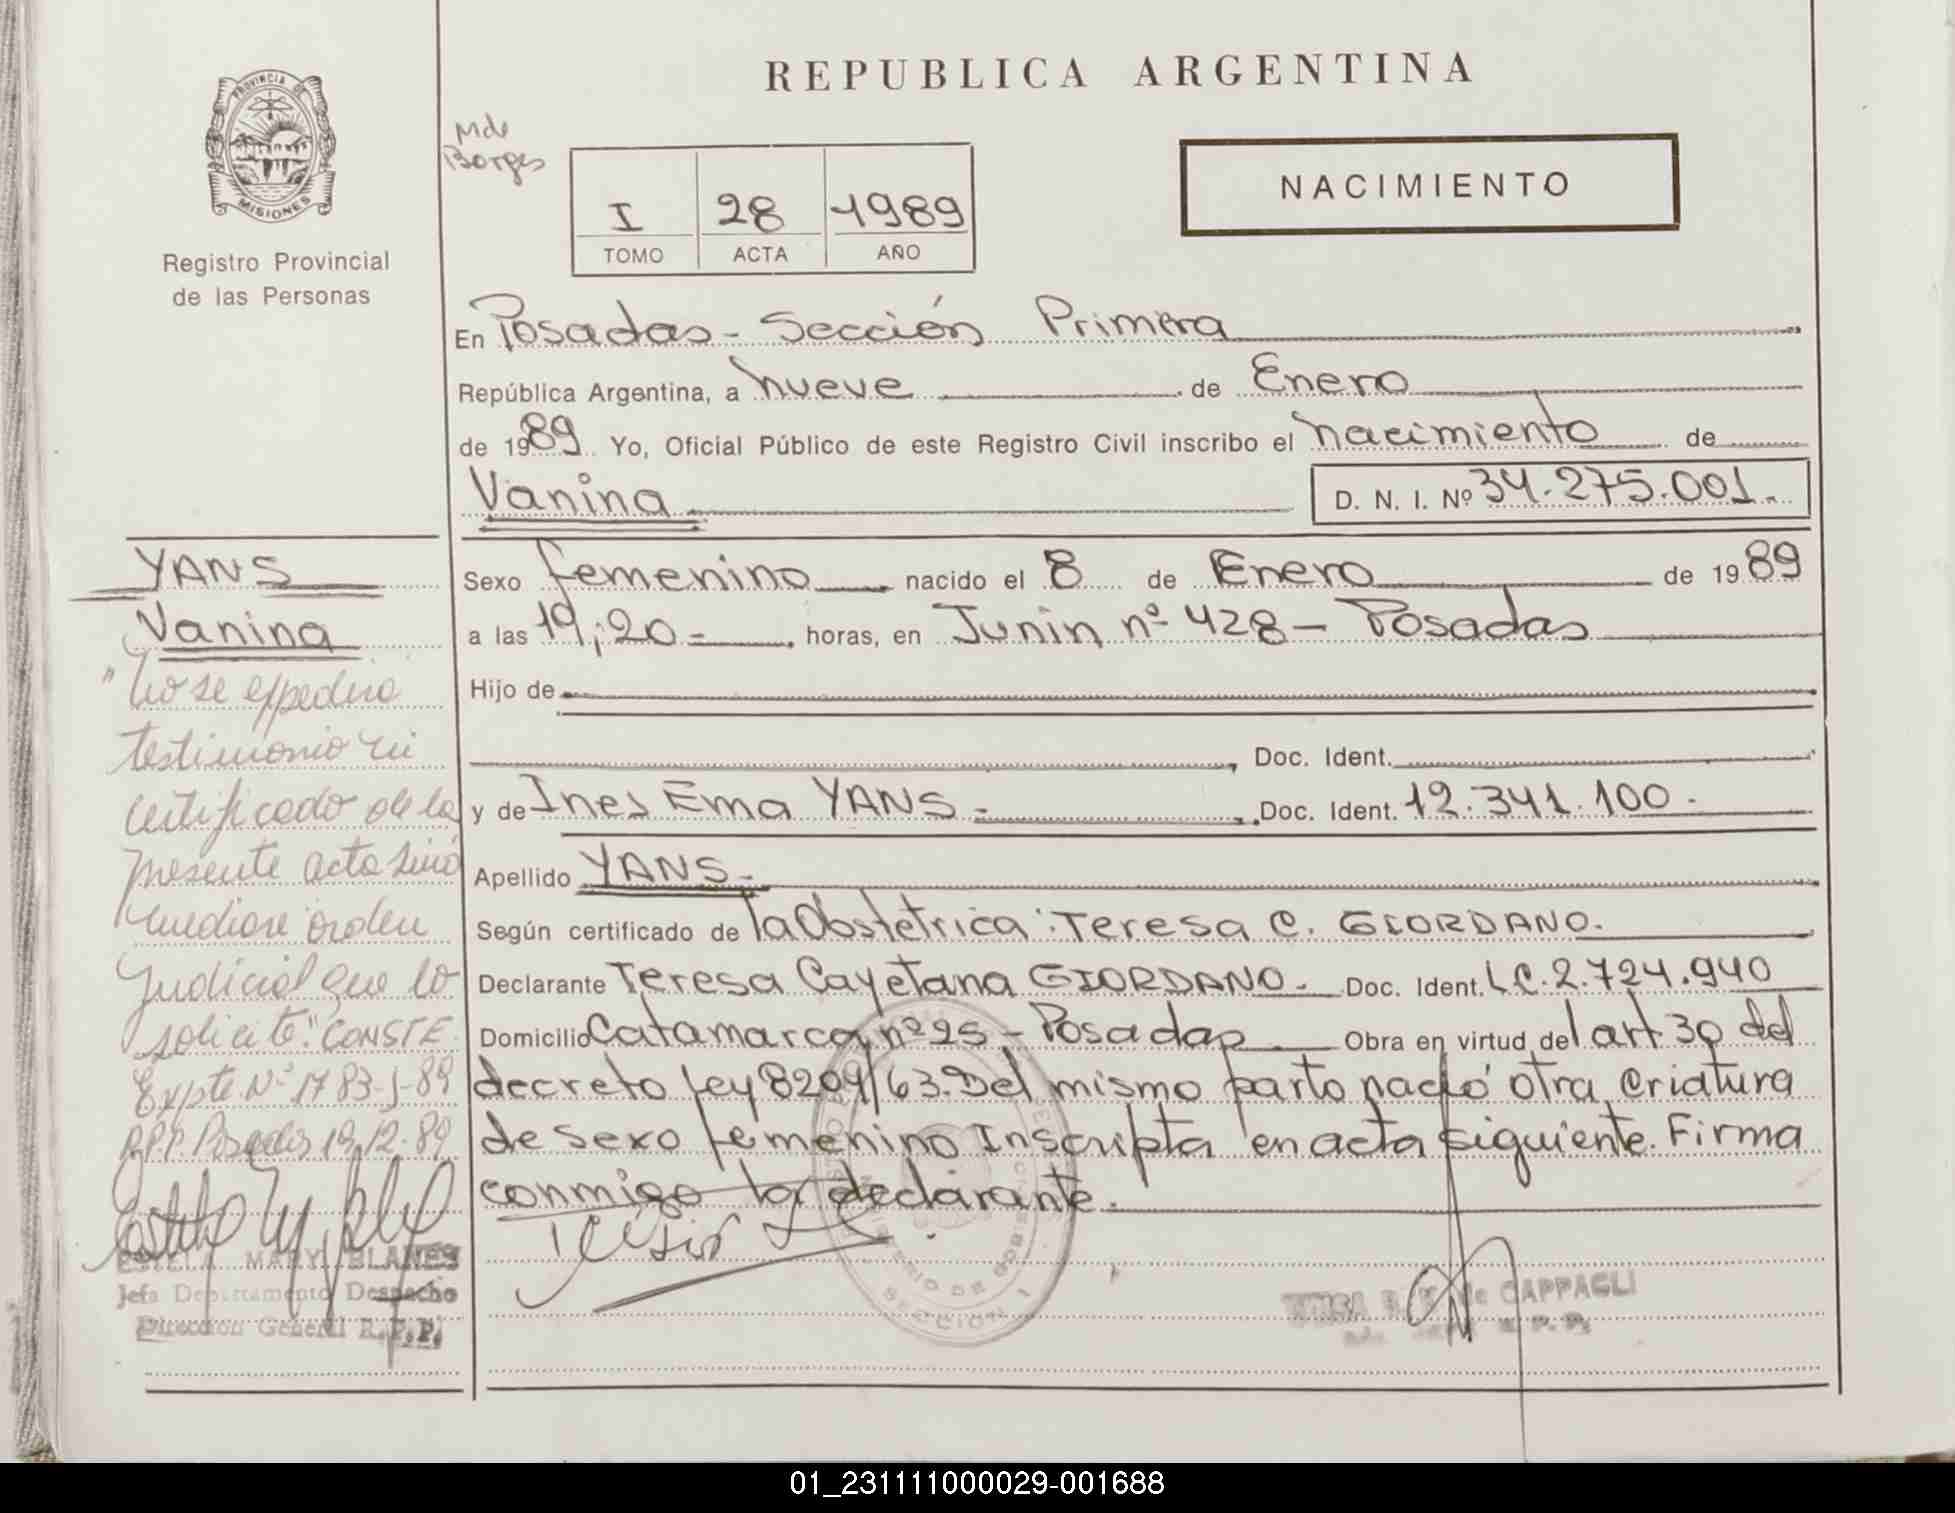 REPUBLICA ARGENTINA
PROVINCIA DE
MISIONES
Registro Provincial
de las Personas
Mde
Borges
I 28 1989
TOMO ACTA AÑO
NACIMIENTO
En Posadas - Sección Primera
República Argentina, a nueve de Enero
de 1989 Yo, Oficial Público de este Registro Civil inscribo el nacimiento de
Vanina D. N. I. Nº 34.275.001.-
Sexo femenino nacido el 8 de Enero de 1989
a las 19,20- horas, en Junin nº 428 - Posadas
Hijo de
, Doc. Ident.
y de Ines Ema YANS.- , Doc. Ident. 12.341.100.
Apellido YANS.-
Según certificado de la Obstétrica: Teresa C. GIORDANO.
Declarante Teresa Cayetana GIORDANO.- Doc. Ident. L.C. 2.724.940
Domicilio Catamarca nº 25 - Posadas Obra en virtud del art. 30 del
decreto ley 8209/63. Del mismo parto nació otra criatura
de sexo femenino Inscripta en acta siguiente. Firma
conmigo la declarante.
YANS
Vanina
"No se expedira
testimonio ni
certificado de la
presente acta sino
mediare orden
judicial que lo
solicite". CONSTE.
Expte Nº 1783-J-89
R.P.P. Posadas 19/12-89
ESTELA MARY BLANES
Jefa Departamento Despacho
Dirección General R.P.P.
MINISTERIO DE GOBIERNO
SECCION 1
de CAPPAGLI
R. P. P.
01_231111000029-001688